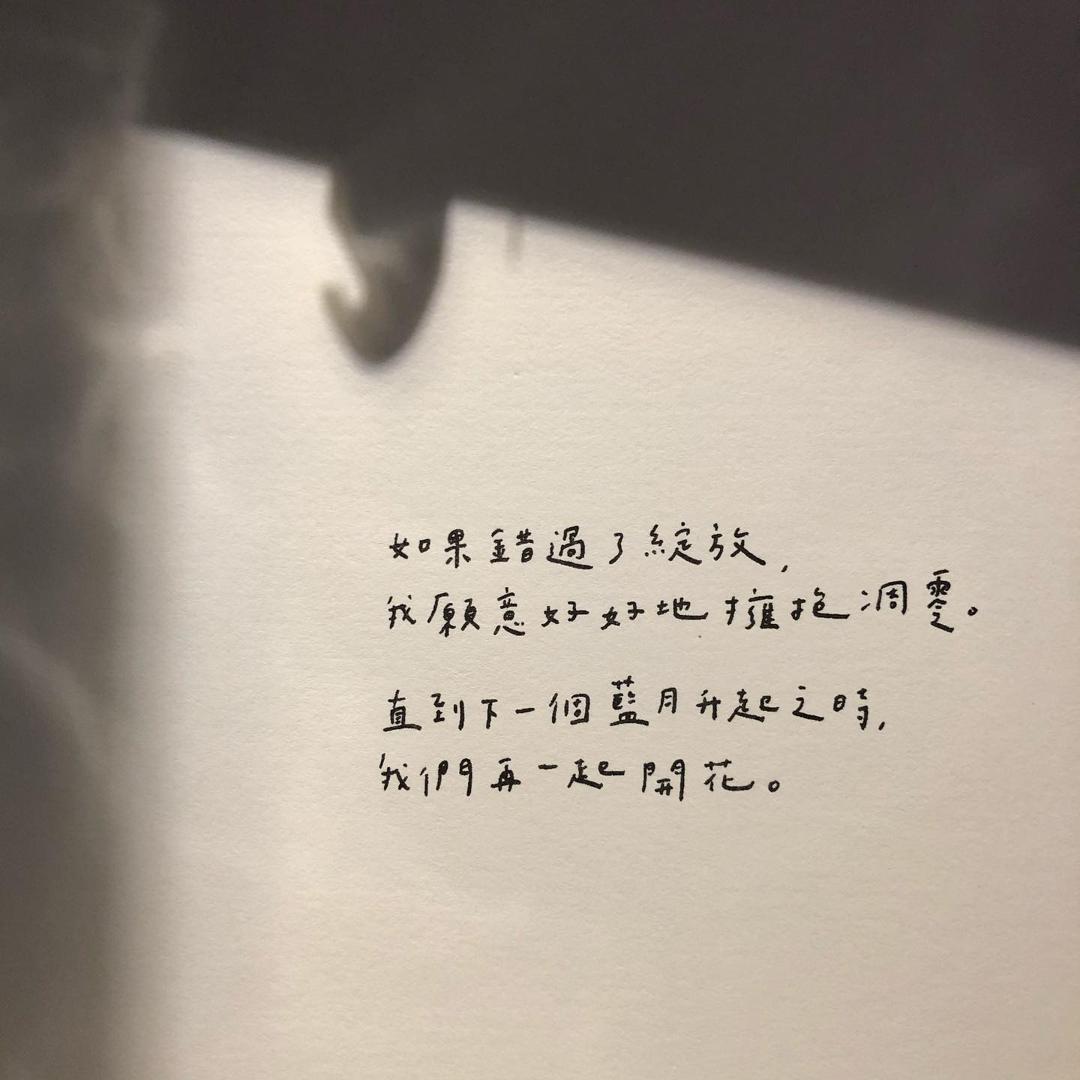 如果錯過了綻放，
我願意好好地擁抱凋零。
直到下一個藍月升起之時，
我們再一起開花。